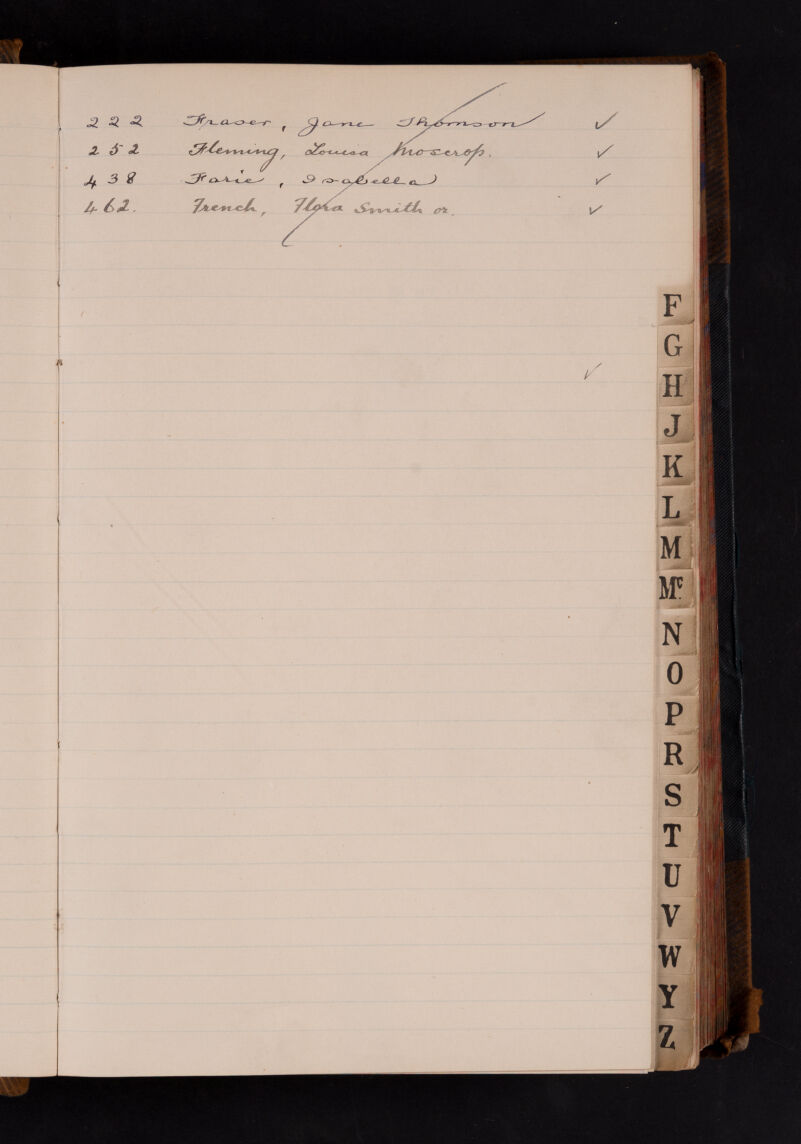 222 Fraser, Jane Thomson ✓
252 Fleming, Louisa Moscrop. ✓
438 Farie, Isabella ✓
462. French, Flora Smith or. ✓
F
G
H
✓
J
K
L
M
Mc.
N
O
P
R
S
T
U
V
W
Y
Z